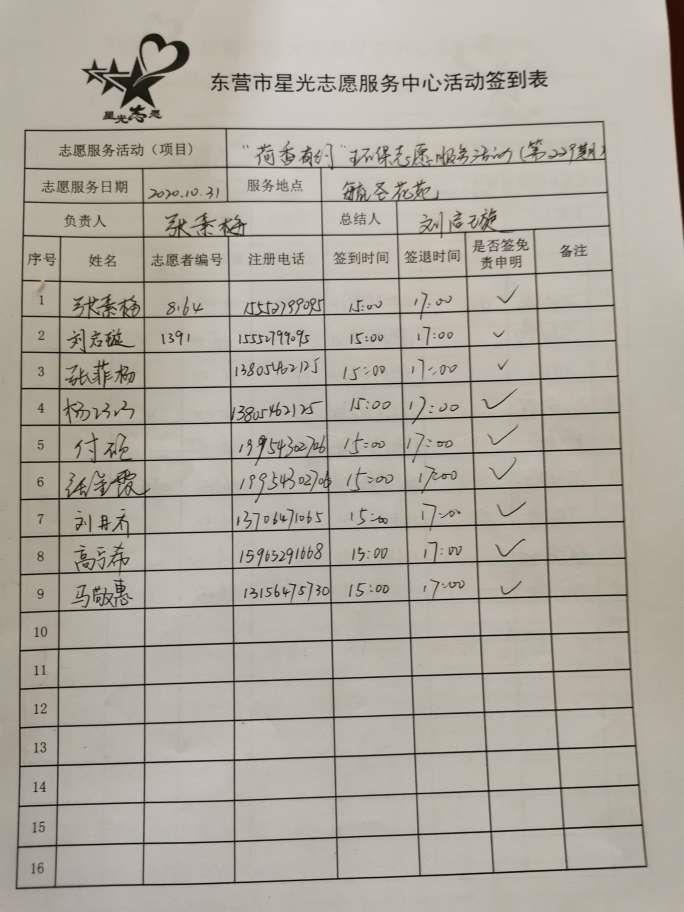 星光志愿
东营市星光志愿服务中心活动签到表
志愿服务活动（项目） “荷香有约”环保志愿服务活动（第229期）
志愿服务日期 2020.10.31 服务地点 花苑
负责人 张素梅 总结人 刘启璇
序号 姓名 志愿者编号 注册电话 签到时间 签退时间 是否签免责申明 备注
1 张素梅 8164 15552799095 15:00 17:00 ✓
2 刘启璇 1391 15552799095 15:00 17:00 ✓
3 张菲杨 13805462125 15:00 17:00 ✓
4 杨 13805462125 15:00 17:00 ✓
5 付硕 19954302706 15:00 17:00 ✓
6 霞 19954302706 15:00 17:00 ✓
7 刘 13706471065 15:00 17:00 ✓
8 高 希 15965291668 15:00 17:00 ✓
9 马敬惠 13156475730 15:00 17:00 ✓
10
11
12
13
14
15
16